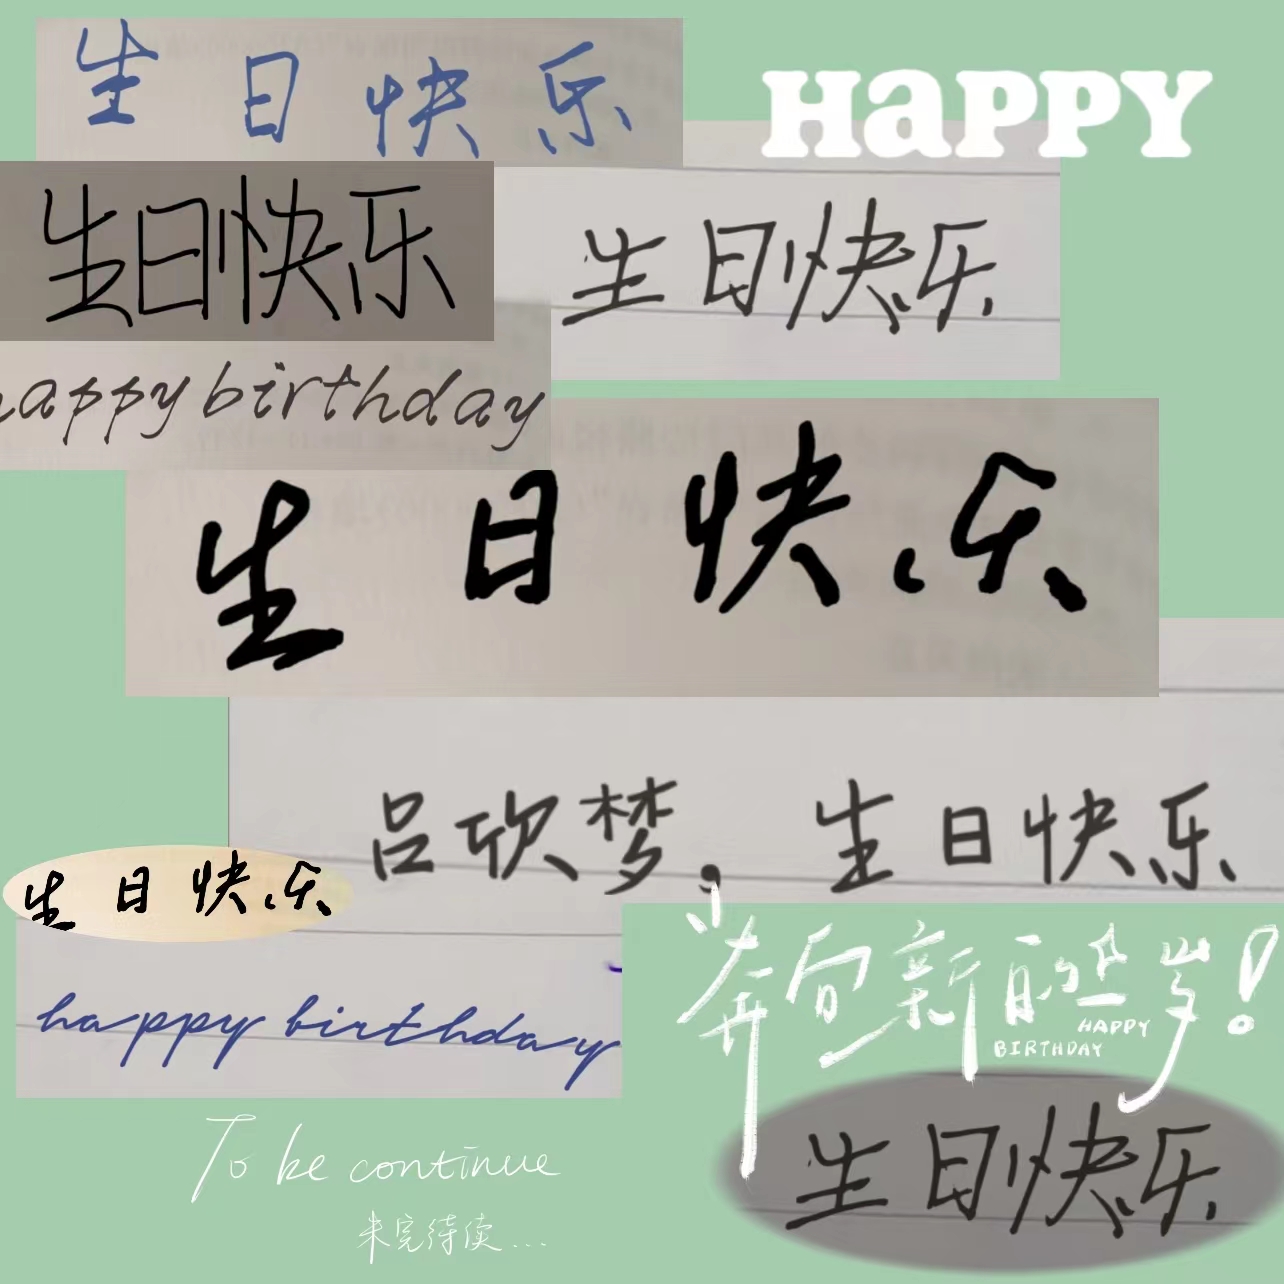 生日快乐
HaPPY
生日快乐
生日快乐
happy birthday
生日快乐
吕欣梦，生日快乐
生日快乐
happy birthday
奔向新的一岁！
HAPPY
BIRTHDAY
生日快乐
To be continue
未完待续...